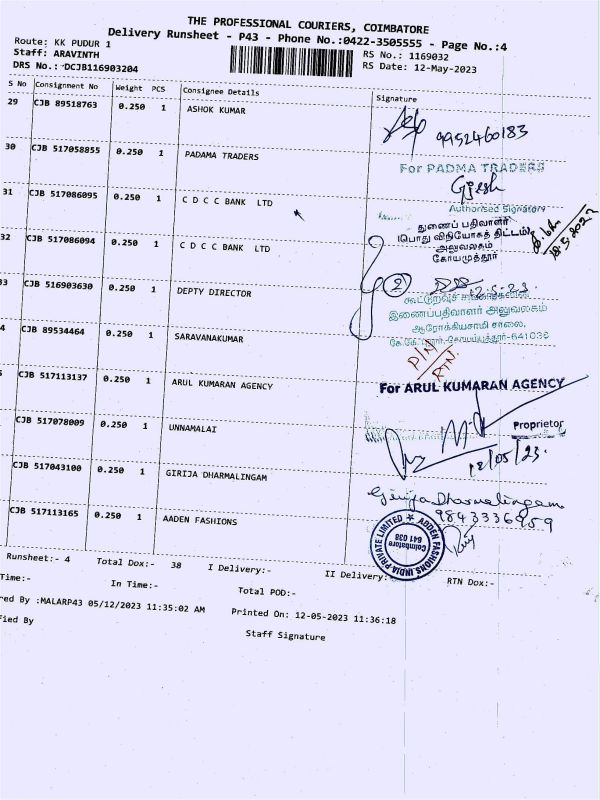 THE PROFESSIONAL COURIERS, COIMBATORE
Delivery Runsheet - P43 - Phone No.:0422-3505555 - Page No.:4
Route: KK PUDUR 1
Staff: ARAVINTH
DRS No.: DCJB116903204
RS No.: 1169032
RS Date: 12-May-2023
S No Consignment No Weight PCS Consignee Details Signature
29 CJB 89518763 0.250 1 ASHOK KUMAR
9952460183
30 CJB 517058855 0.250 1 PADAMA TRADERS
For PADMA TRADERS
Authorised Signatory
31 CJB 517086095 0.250 1 C D C C BANK LTD
துணைப் பதிவாளர்
(பொது விநியோகத் திட்டம்)
அலுவலகம்
கோயமுத்தூர்
32 CJB 517086094 0.250 1 C D C C BANK LTD
2
33 CJB 516903630 0.250 1 DEPTY DIRECTOR
இணைப்பதிவாளர் அலுவலகம்
ஆரோக்கியசாமி சாலை,
4 CJB 89534464 0.250 1 SARAVANAKUMAR
RTN
CJB 517113137 0.250 1 ARUL KUMARAN AGENCY
For ARUL KUMARAN AGENCY
Proprietor
12/05/23
CJB 517078009 0.250 1 UNNAMALAI
CJB 517043100 0.250 1 GIRIJA DHARMALINGAM
Girija Dharmalingam
9843336959
CJB 517113165 0.250 1 AADEN FASHIONS
AADEN FASHIONS INDIA PRIVATE LIMITED
Coimbatore
641 038
Runsheet:- 4 Total Dox:- 38 I Delivery:- II Delivery:- RTN Dox:-
Time:- In Time:- Total POD:-
red By :MALARP43 05/12/2023 11:35:02 AM Printed On: 12-05-2023 11:36:18
fied By Staff Signature